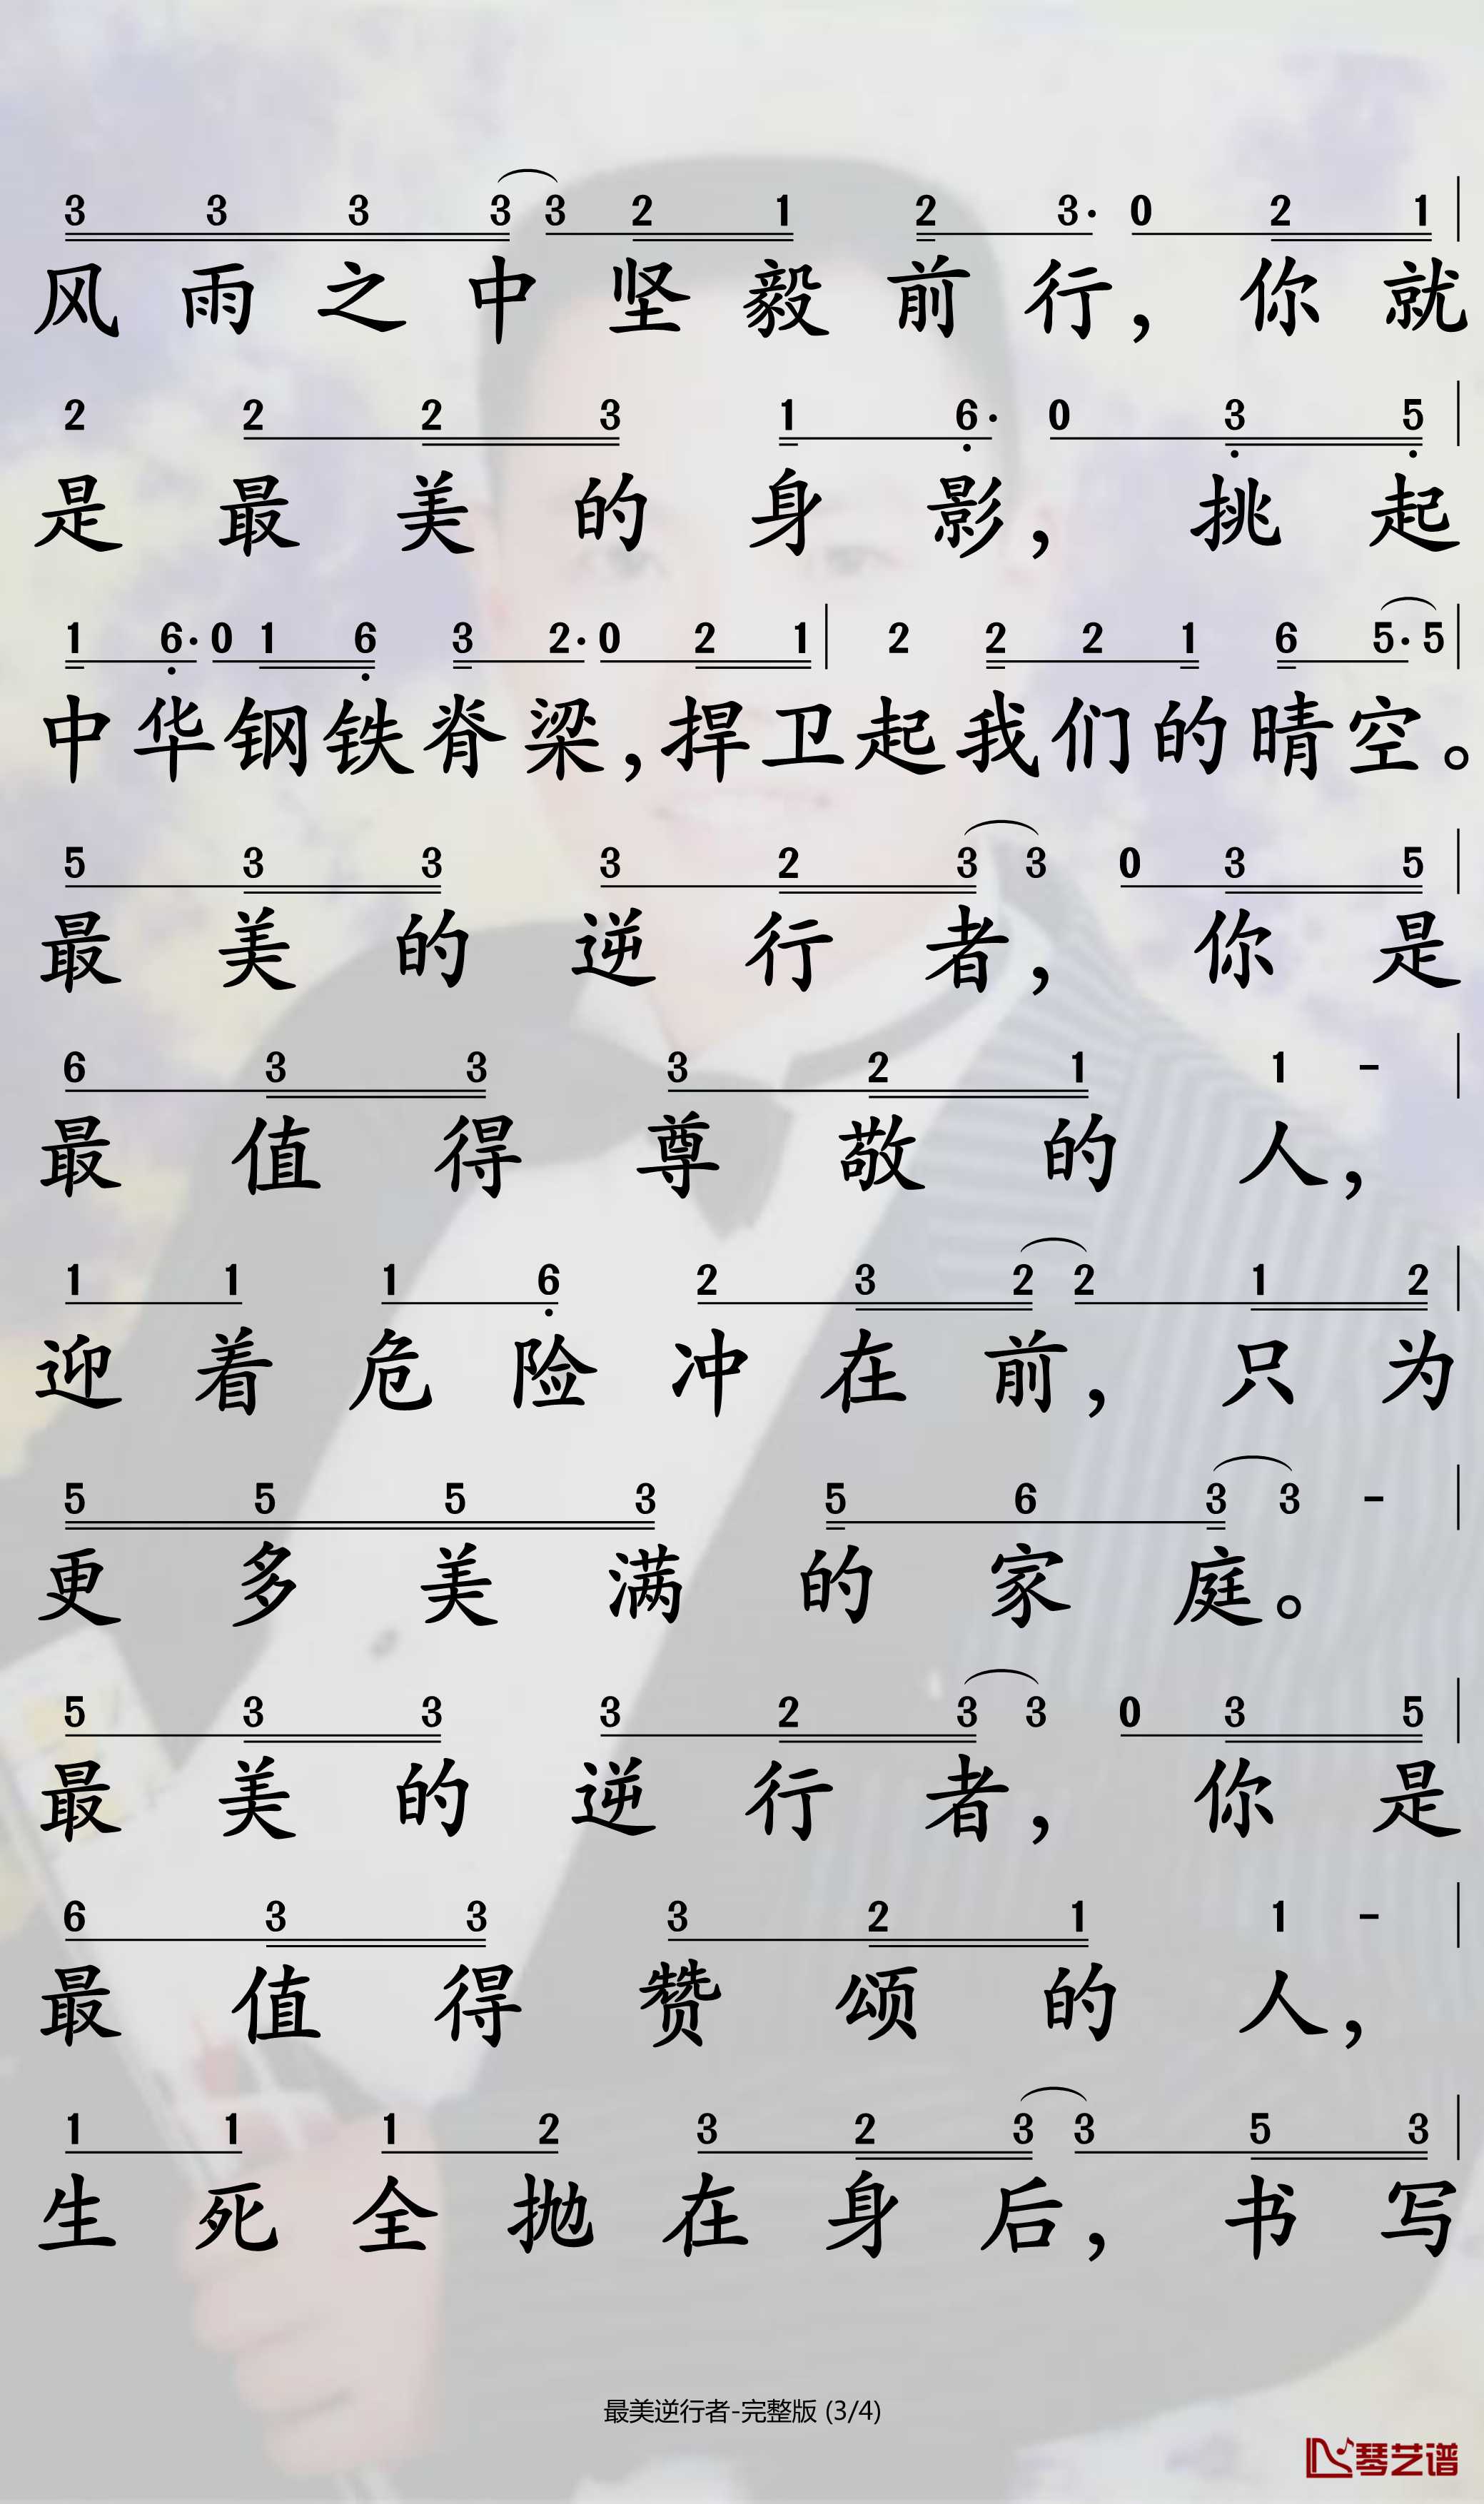 3 3 3 3 3 2 1 2 3· 0 2 1
风雨之中坚毅前行，你就
2 2 2 3 1 6· 0 3 5
是最美的身影，挑起
1 6· 0 1 6 3 2· 0 2 1 2 2 2 1 6 5· 5
中华钢铁脊梁，捍卫起我们的晴空。
5 3 3 3 2 3 3 0 3 5
最美的逆行者，你是
6 3 3 3 2 1 1 -
最值得尊敬的人，
1 1 1 6 2 3 2 2 1 2
迎着危险冲在前，只为
5 5 5 3 5 6 3 3 -
更多美满的家庭。
5 3 3 3 2 3 3 0 3 5
最美的逆行者，你是
6 3 3 3 2 1 1 -
最值得赞颂的人，
1 1 1 2 3 2 3 3 5 3
生死全抛在身后，书写
最美逆行者-完整版 (3/4)
琴艺谱